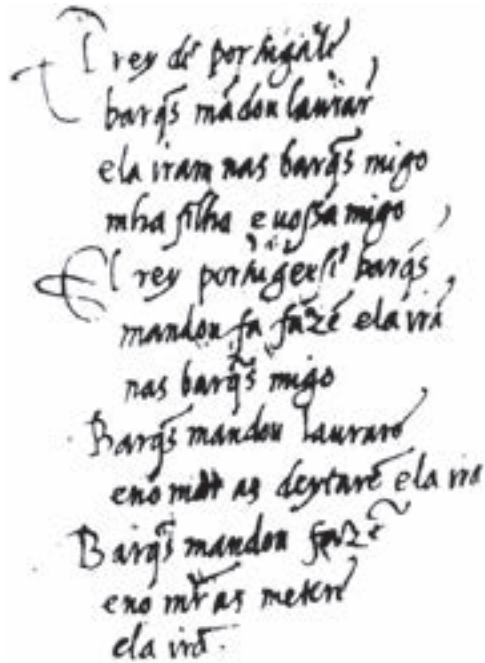 El rey de portugale
barq̃s mãdou laurar
ela iram nas barq̃s migo
mha filha e uossa migo
El rey portugeesi barq̃s
mandou fazẽ ela irã
nas barq̃s migo
Barq̃s mandou laurare
eno mar as deytarẽ ela irã
Barq̃s mandou fazẽ
eno mr̃ as metere
ela irã